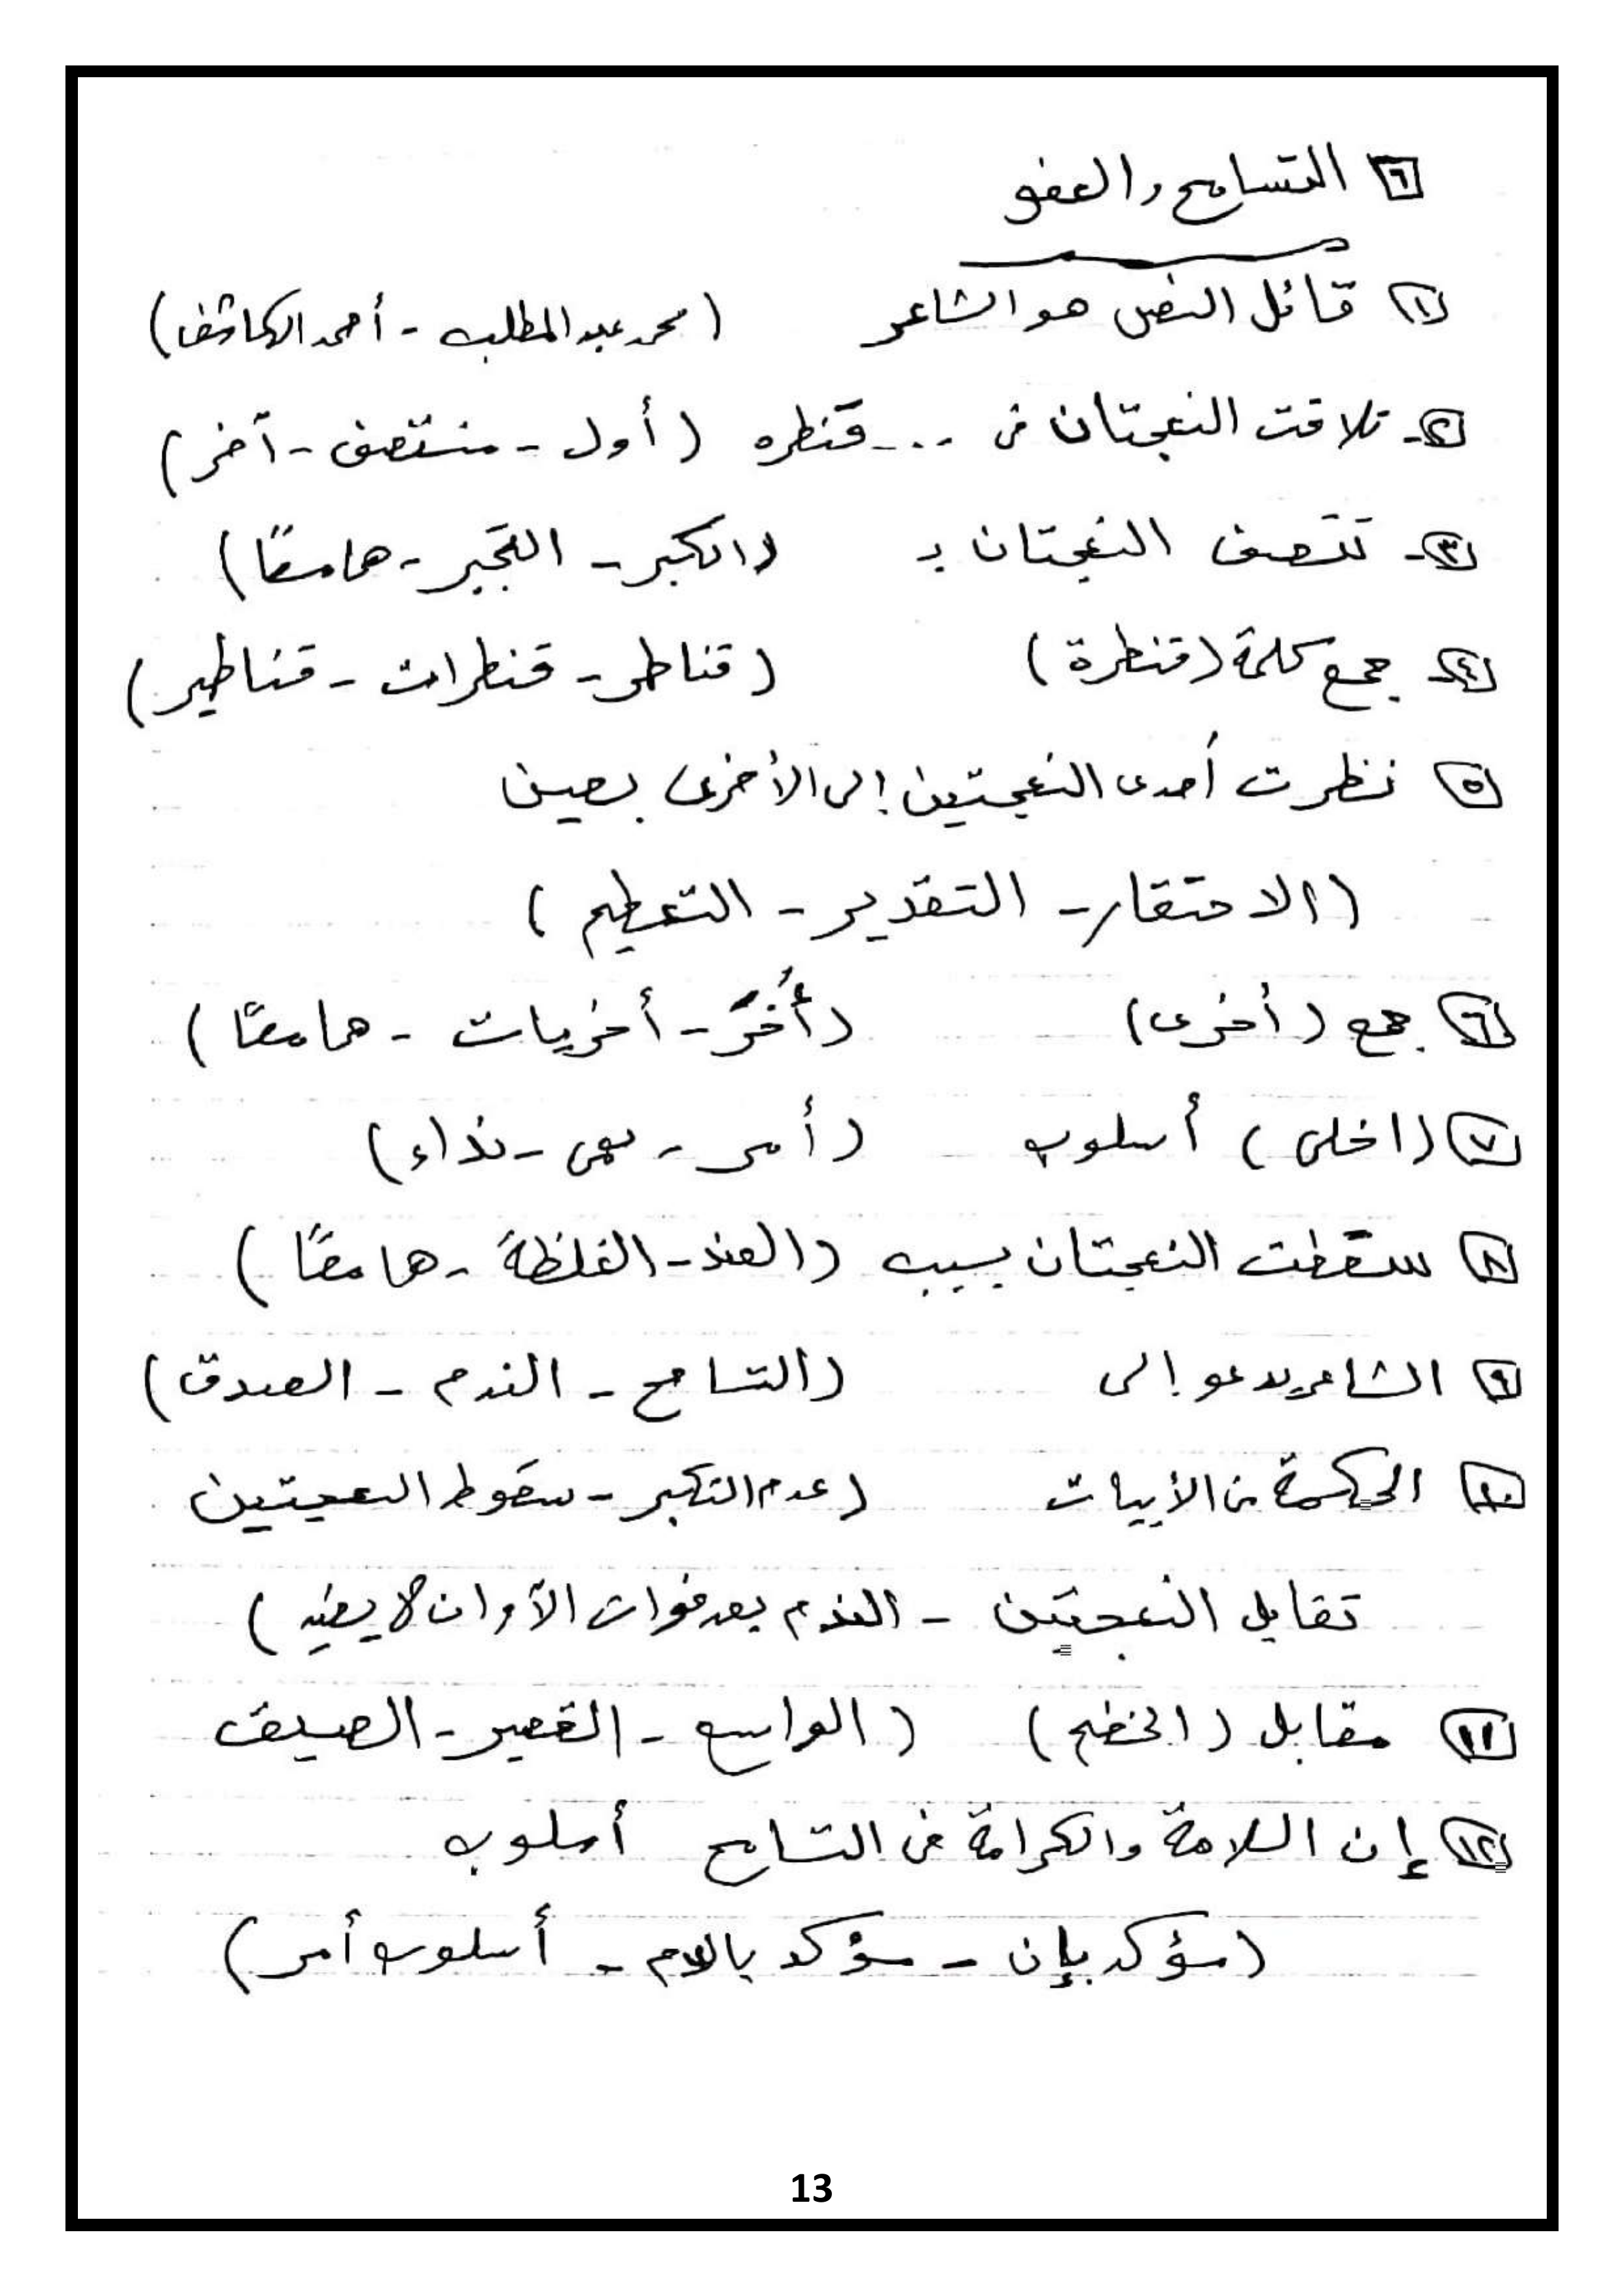 ٦ التسامح والعفو
١ قائل النص هو الشاعر (محمد عبد المطلب - أحمد الكاشف)
٢- تلاقت النعجتان فى ... قنطره (أول - منتصف - آخر)
٣- تتصف النعجتان بـ (الكبر - التجبر - هما معًا)
٤- جمع كلمة (قنطرة) (قناطر - قنطرات - قناطير)
٥ نظرت أحدى النعجتين إلى الأخرى بعين
(الاحتقار - التقدير - التعظيم)
٦ جمع (أخرى) (أُخر - أخريات - هما معًا)
٧ (اخلى) أسلوب (أمر - نهى - نداء)
٨ سقطت النعجتان بسبب (العند - الغلظة - هما معًا)
٩ الشاعر يدعو إلى (التسامح - الندم - الصدق)
١٠ الحكمة من الأبيات (عدم التكبر - سقوط النعجتين
تقابل النعجتين - الندم بعد فوات الآوان لا يفيد)
١١ مقابل (الخضم) (الواسع - القصير - الضيق
١٢ إن السلامة والكرامة فى التسامح أسلوب
(مؤكد بإن - مؤكد باللام - أسلوب أمر)
13